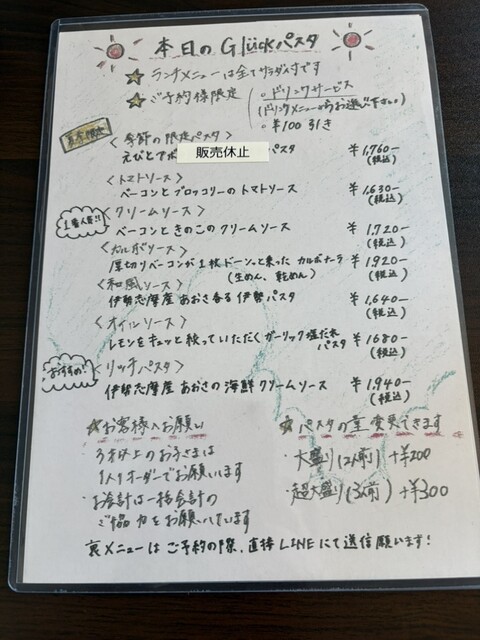 本日のGlückパスタ
ランチメニューは全てサラダ付です
ご予約様限定
・ドリンクサービス
(ドリンクメニューからお選び下さい)
・¥100引き
夏季限定
〈季節の限定パスタ〉
えびとアボ 販売休止 パスタ ¥1,760-
(税込)
〈トマトソース〉
ベーコンとブロッコリーのトマトソース ¥1,630-
(税込)
1番人気!!
〈クリームソース〉
ベーコンときのこのクリームソース ¥1,720-
(税込)
〈カルボソース〉
厚切りベーコンが1枚ドーンッと乗ったカルボナーラ ¥1,920-
(生めん、乾めん) (税込)
〈和風ソース〉
伊勢志摩産あおさ香る伊勢パスタ ¥1,640-
(税込)
〈オイルソース〉
レモンをキュッと絞っていただくガーリック塩だれ
パスタ ¥1680-
(税込)
おすすめ!
〈リッチパスタ〉
伊勢志摩産あおさの海鮮クリームソース ¥1,940-
(税込)
お客様へお願い
・3才以上のお子さまは
1人1オーダーでお願いします
・お会計は一括会計の
ご協力をお願いしています
パスタの量変更できます
・大盛り(2人前) +¥200
・超大盛り(3人前) +¥300
裏メニューはご予約の際、直接LINEにて送信願います!